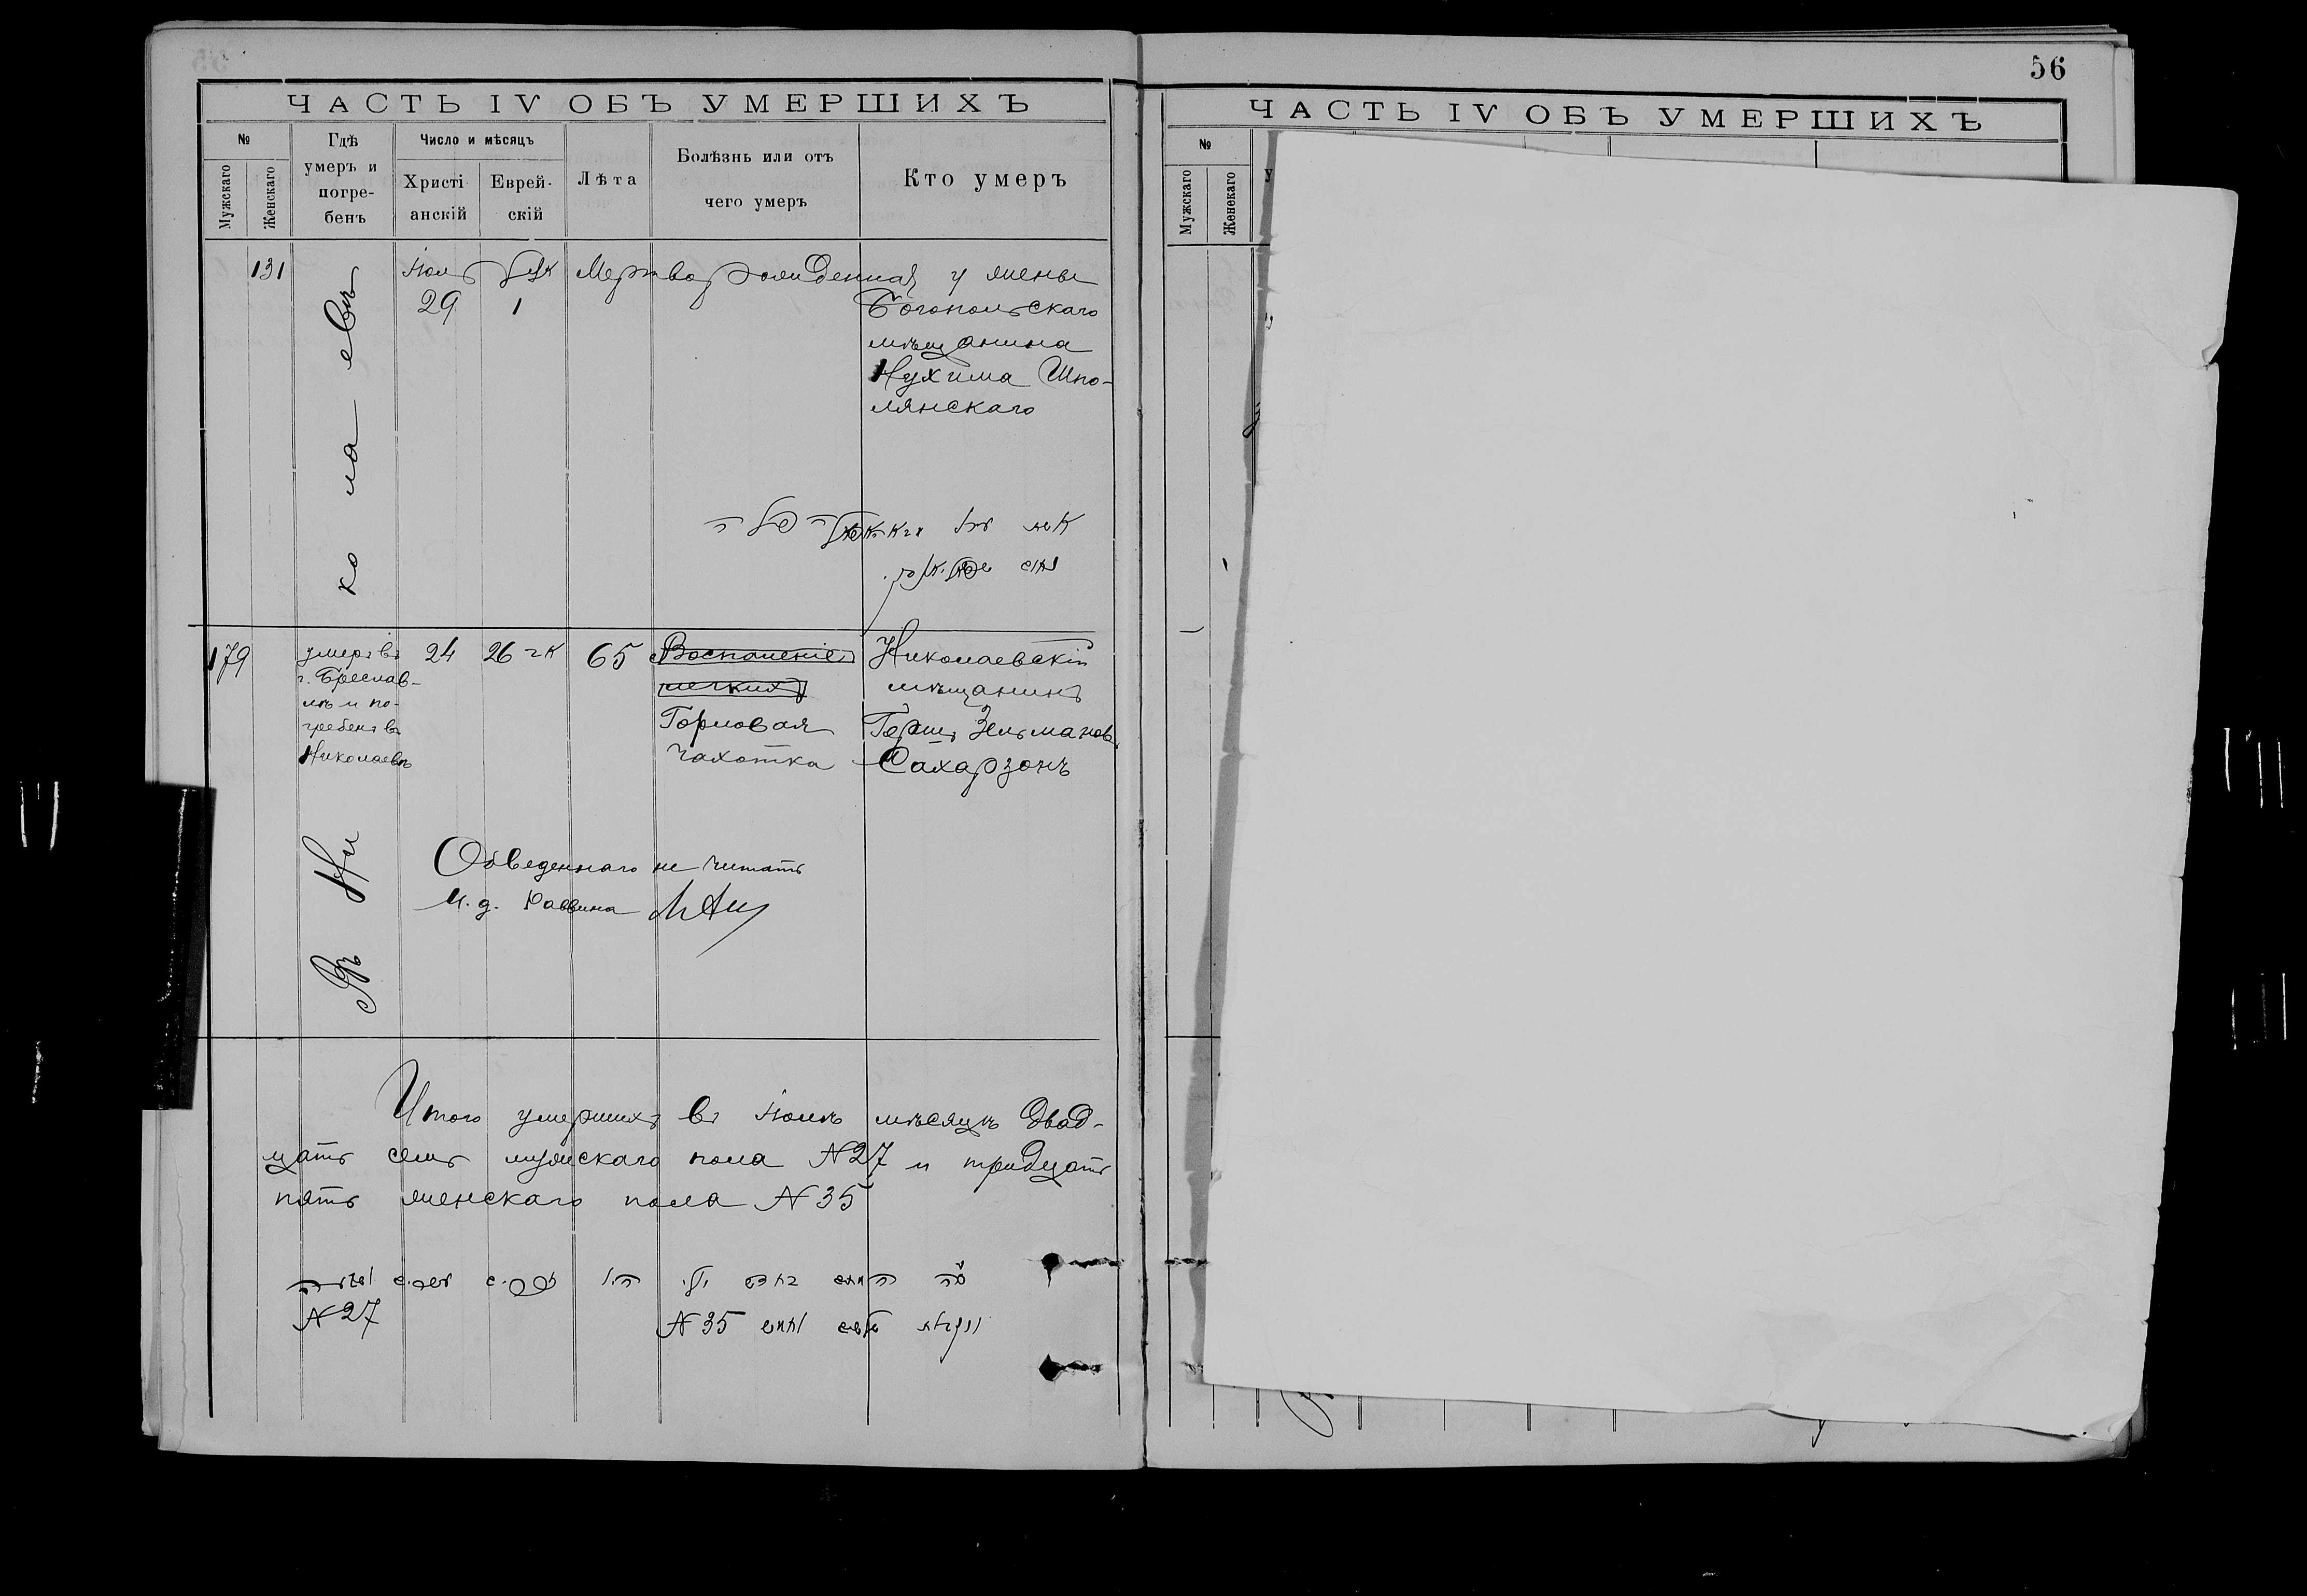 56
ЧАСТЬ IV ОБЪ УМЕРШИХЪ
№
Мужскаго
Женскаго
Гдѣ
умеръ и
погре-
бенъ
Число и мѣсяцъ
Христі
анскій
Еврей-
скій
Лѣта
Болѣзнь или отъ
чего умеръ
Кто умеръ
131
Въ Николаевѣ
Іюль
29
1
Мертворожденная у жены
Богопольскаго
мѣщанина
Нухима Шпо-
лянскаго
179
умеръ въ
г. Бреслав-
лѣ и по-
гребенъ въ
Николаевѣ
24
26
65
Воспаленіе
легкихъ
Горловая
чахотка
Николаевскій
мѣщанинъ
Герш Зельманов
Сахарзонъ
Обведеннаго не читать
И. д. Раввина
Итого умершихъ въ Іюлѣ мѣсяцѣ двад-
цать семь мужскаго пола N 27 и тридцать
пять женскаго пола N 35
N 27
N 35
ЧАСТЬ IV ОБЪ УМЕРШИХЪ
№
Мужскаго
Женскаго